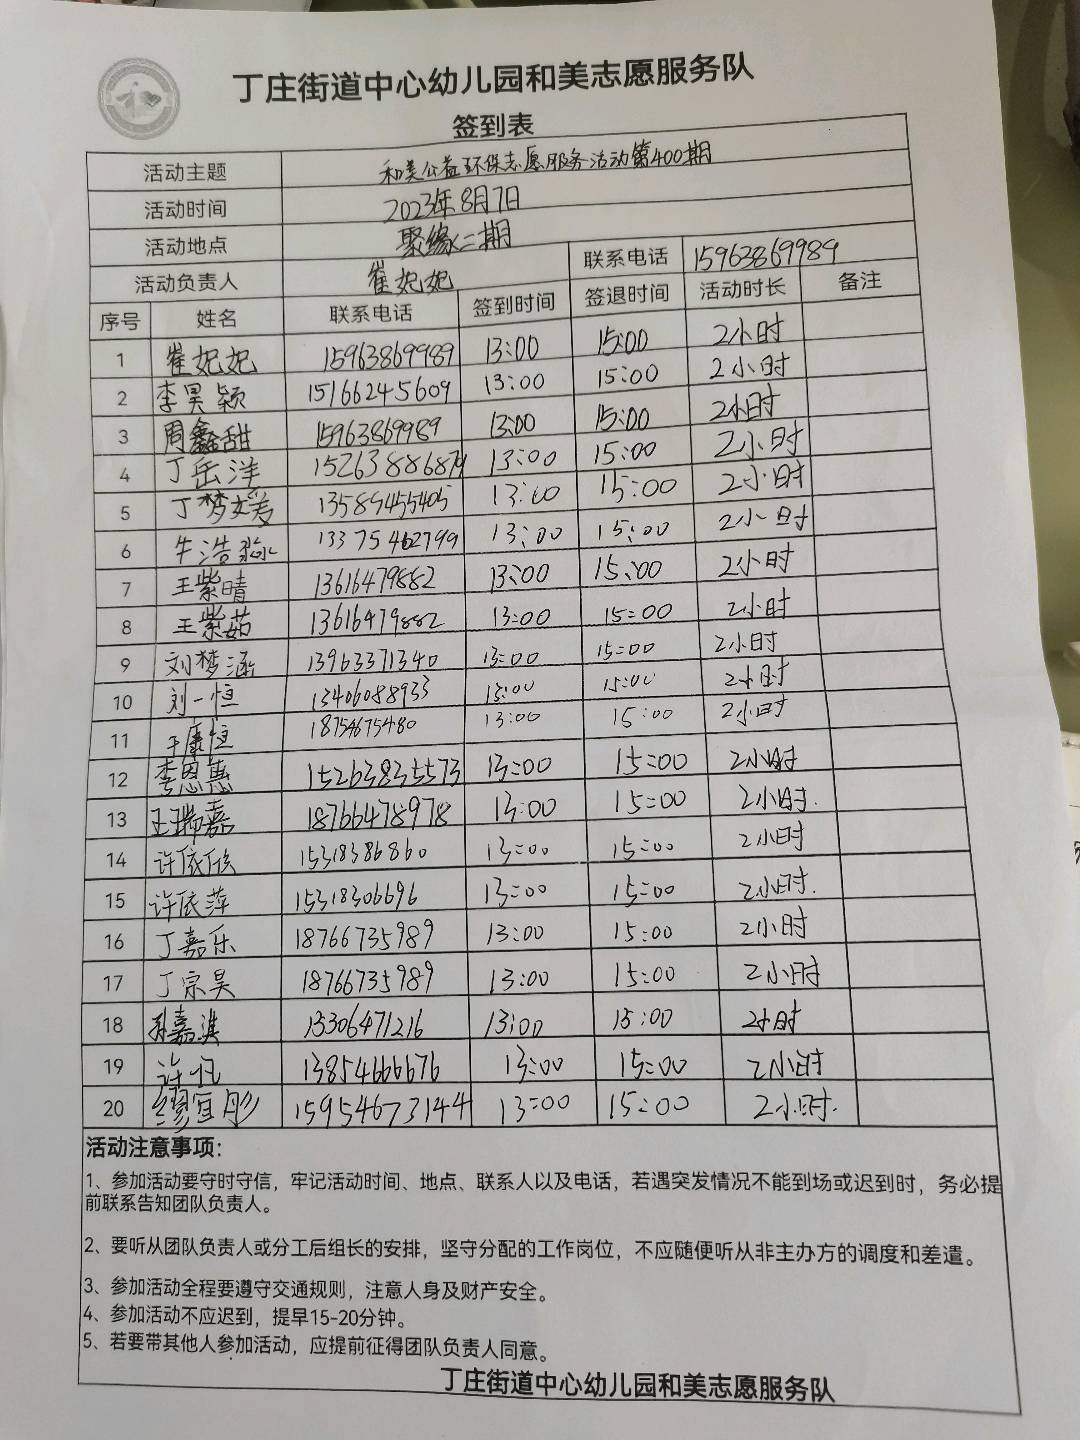 丁庄街道中心幼儿园和美志愿服务队
签到表
活动主题 和美公益环保志愿服务活动第400期
活动时间 2023年8月7日
活动地点 聚缘二期
活动负责人 崔妃妃 联系电话 15963869989
序号 姓名 联系电话 签到时间 签退时间 活动时长 备注
1 崔妃妃 15963869989 13:00 15:00 2小时
2 李昊颖 15166245609 13:00 15:00 2小时
3 周鑫甜 15963869989 13:00 15:00 2小时
4 丁岳洋 15263886874 13:00 15:00 2小时
5 丁梦媛 13589455405 13:00 15:00 2小时
6 牛浩淼 13375462799 13:00 15:00 2小时
7 王紫晴 13616479882 13:00 15:00 2小时
8 王紫茹 13616479882 13:00 15:00 2小时
9 刘梦涵 13963371340 13:00 15:00 2小时
10 刘一恒 13406088933 13:00 15:00 2小时
11 于康恒 18754675480 13:00 15:00 2小时
12 李恩惠 15263835573 13:00 15:00 2小时
13 王瑞嘉 18766478978 13:00 15:00 2小时.
14 许依欣 15318386860 13:00 15:00 2小时
15 许依萍 15318306696 13:00 15:00 2小时.
16 丁嘉乐 18766735989 13:00 15:00 2小时
17 丁宗昊 18766735989 13:00 15:00 2小时
18 孙嘉淇 13306471216 13:00 15:00 2小时
19 许 13854666676 13:00 15:00 2小时
20 缪宜彤 15954673144 13:00 15:00 2小时.
活动注意事项：
1、参加活动要守时守信，牢记活动时间、地点、联系人以及电话，若遇突发情况不能到场或迟到时，务必提
前联系告知团队负责人。
2、要听从团队负责人或分工后组长的安排，坚守分配的工作岗位，不应随便听从非主办方的调度和差遣。
3、参加活动全程要遵守交通规则，注意人身及财产安全。
4、参加活动不应迟到，提早15-20分钟。
5、若要带其他人参加活动，应提前征得团队负责人同意。
丁庄街道中心幼儿园和美志愿服务队